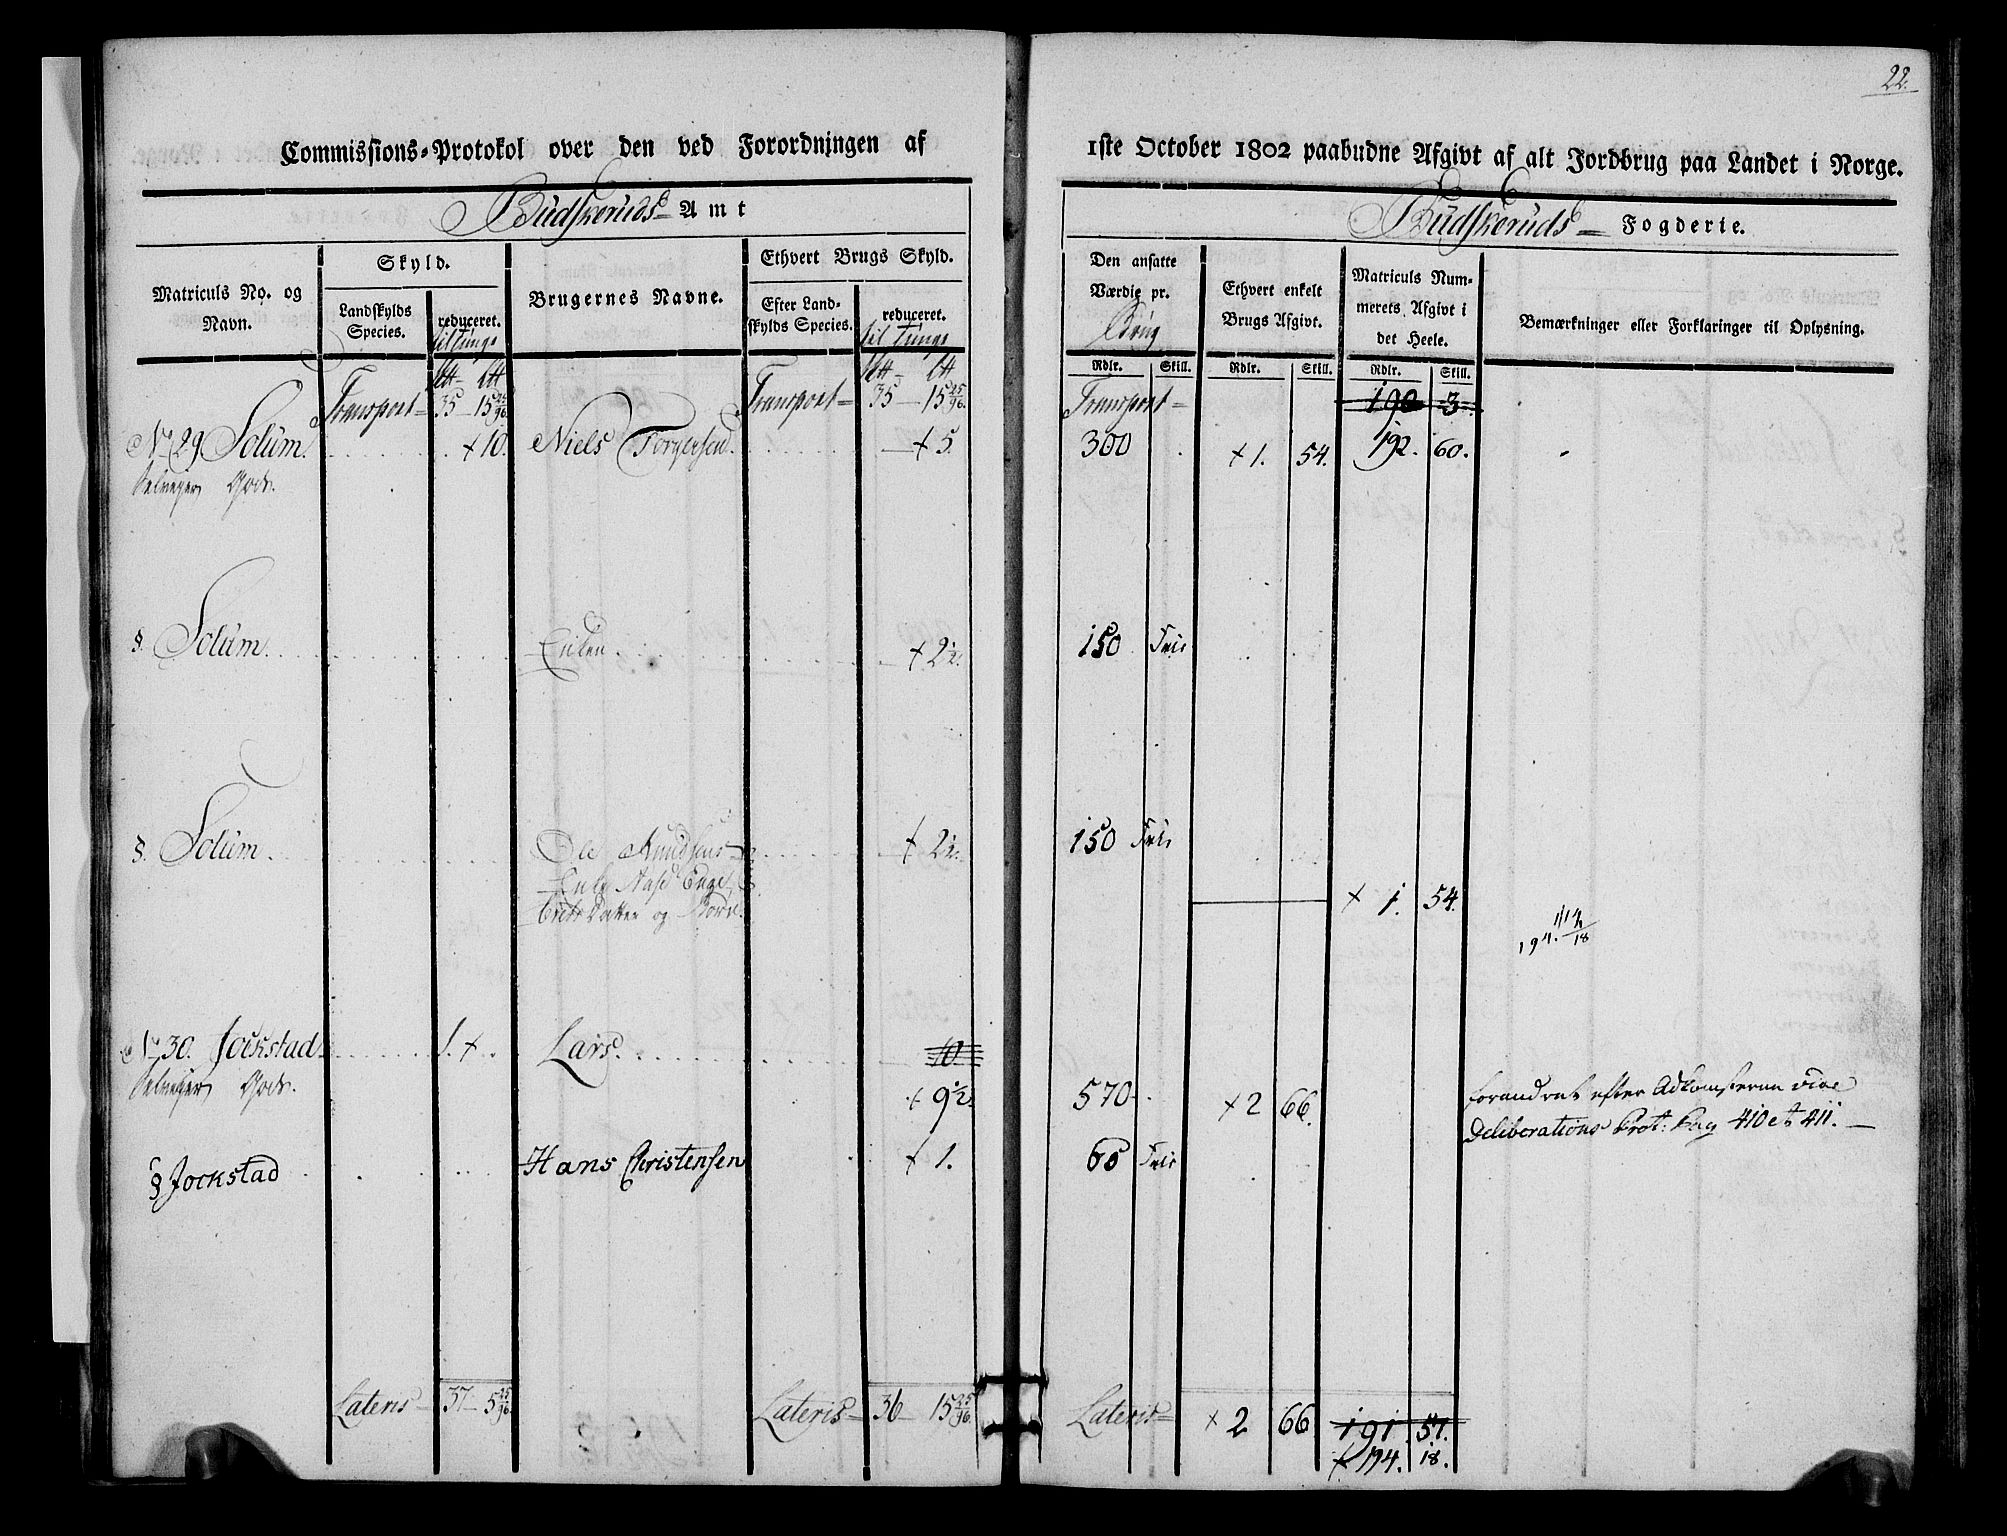 22.
Commissions-Protokol over den ved Forordningen af 1ste October 1802 paabudne Afgivt af alt Jordbrug paa Landet i Norge.
Budskeruds Amt
Budskeruds Fogderie.
Matriculs No. og Navn.
Skyld.
Landskylds Species.
reduceret.
til Tunge
Brugernes Navne.
Ethvert Brugs Skyld.
Efter Landskylds Species.
reduceret.
til Tunge
Den ansatte Værdie pr.
Brug
Rdlr. Skill.
Ethvert enkelt Brugs Afgivt.
Rdlr. Skill.
Matriculs Nummerets Afgivt i det Heele.
Rdlr. Skill.
Bemærkninger eller Forklaringer til Oplysning.
Transport 35 15 25/96 Transport 35 15 25/96 Transport 190 3
No 29 Solum + 10. Niels Torgersen + 5. 300 + 1. 54. 192. 60.
Selveyer Gods.
§. Solum Enken + 2½. 150 Frie
§. Solum Ole Knudsens + 2½. 150 Frie
og Børn.
+ 1. 54.
194. 18
No 30. Jockstad 1. + Lars 10
Selveyer Gods.
+ 9½. 570 + 2 66. forandret efter Adkomsterne vide
Deliberations Prot: Pag 410 et 411.
§ Jockstad Hans Christensen + 1. 60 Frie
Lateris 37 5 25/96. Lateris 36 15 25/96. Lateris + 2 66 191 57.
+ 194. 18.